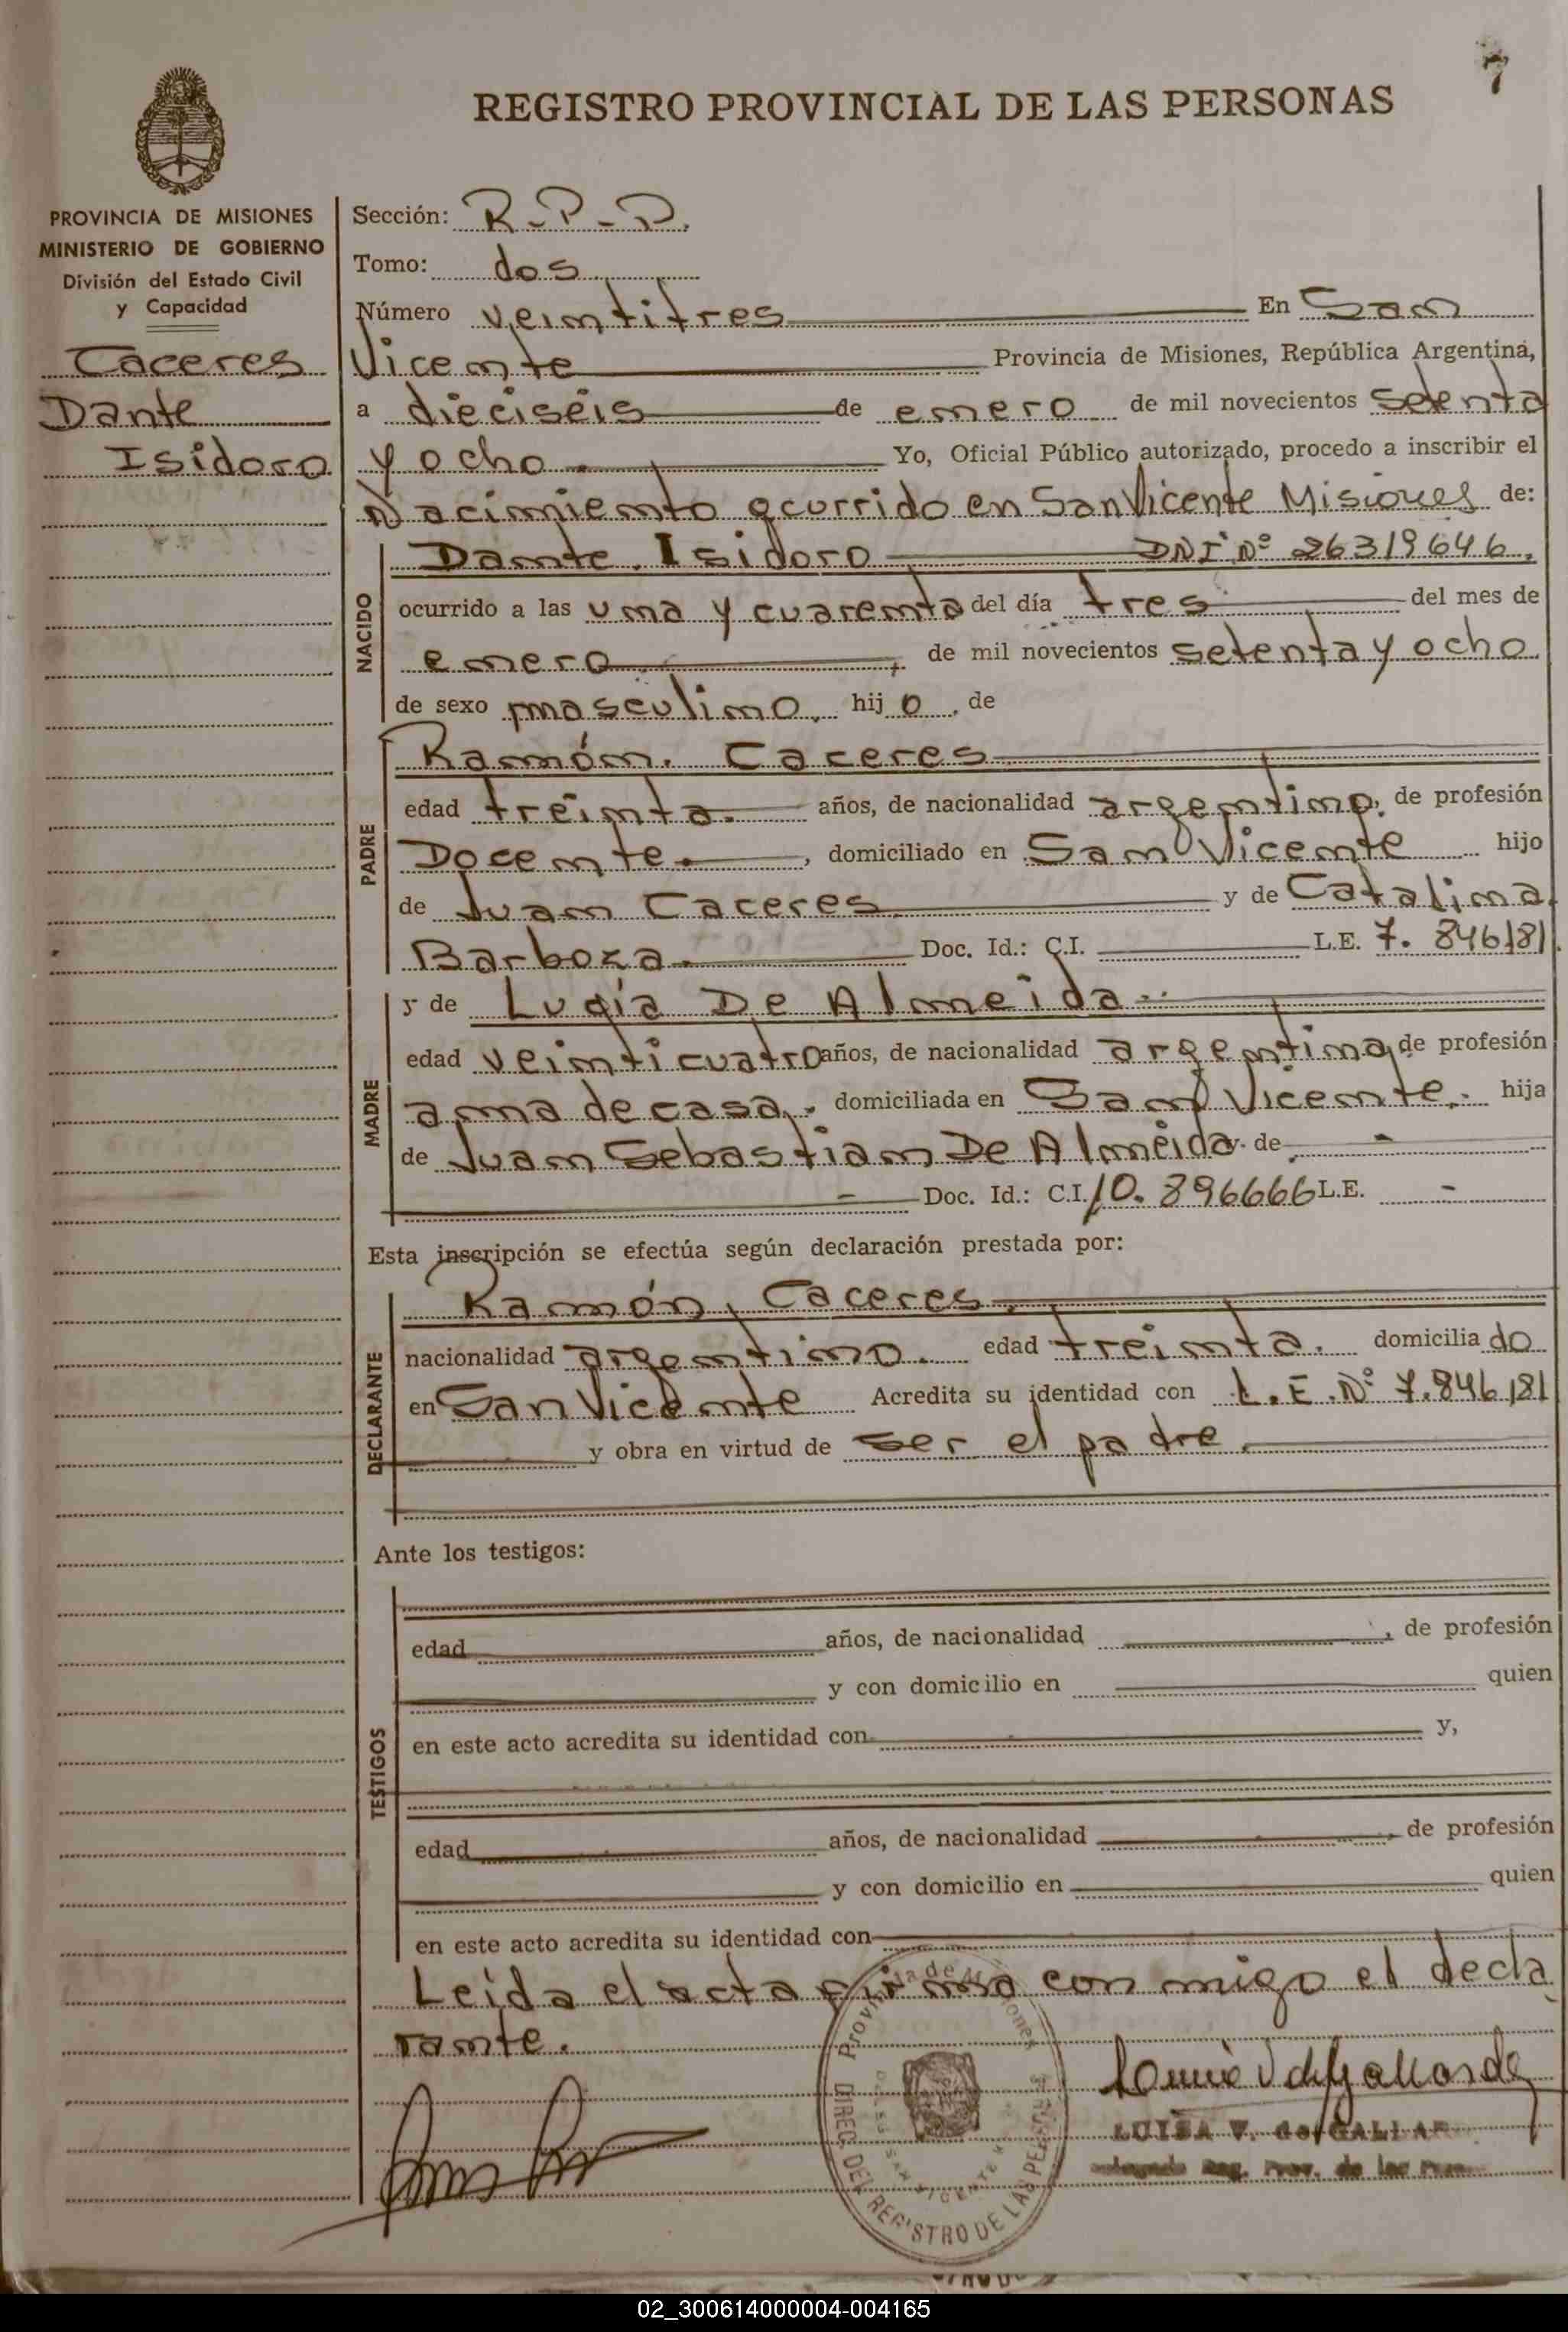 7
REGISTRO PROVINCIAL DE LAS PERSONAS
PROVINCIA DE MISIONES
MINISTERIO DE GOBIERNO
División del Estado Civil
y Capacidad
Caceres
Dante
Isidoro
Sección: R-P-P.
Tomo: dos
Número veintitres En San
Vicente Provincia de Misiones, República Argentina,
a dieciséis de enero de mil novecientos setenta
y ocho Yo, Oficial Público autorizado, procedo a inscribir el
Nacimiento ocurrido en San Vicente Misiones de:
NACIDO
Dante Isidoro DNI Nº 26319646.
ocurrido a las una y cuarenta del día tres del mes de
enero, de mil novecientos setenta y ocho
de sexo masculino, hijo, de
PADRE
Ramón. Caceres
edad treinta. años, de nacionalidad argentino, de profesión
Docente., domiciliado en San Vicente hijo
de Juan Caceres y de Catalina
Barboza. Doc. Id.: C.I. L.E. 7.846181.
MADRE
y de Lugia De Almeida
edad veinticuatro años, de nacionalidad argentina, de profesión
ama de casa, domiciliada en San Vicente, hija
de Juan Sebastian De Almeida y de -
- Doc. Id.: C.I. 10.896666 L.E. -
Esta inscripción se efectúa según declaración prestada por:
DECLARANTE
Ramón, Caceres.
nacionalidad argentino. edad treinta. domiciliado
en San Vicente Acredita su identidad con L.E.Nº 7.846181
y obra en virtud de ser el padre.
Ante los testigos:
TESTIGOS
edad años, de nacionalidad , de profesión
y con domicilio en quien
en este acto acredita su identidad con y,
edad años, de nacionalidad , de profesión
y con domicilio en quien
en este acto acredita su identidad con
Leida el acta firma con migo el decla
rante.
Provincia de Misiones
DIREC. DEL REGISTRO DE LAS PERSONAS
SAN VICENTE
LUISA V. de GALLAR
Reg. Prov. de las
02_300614000004-004165